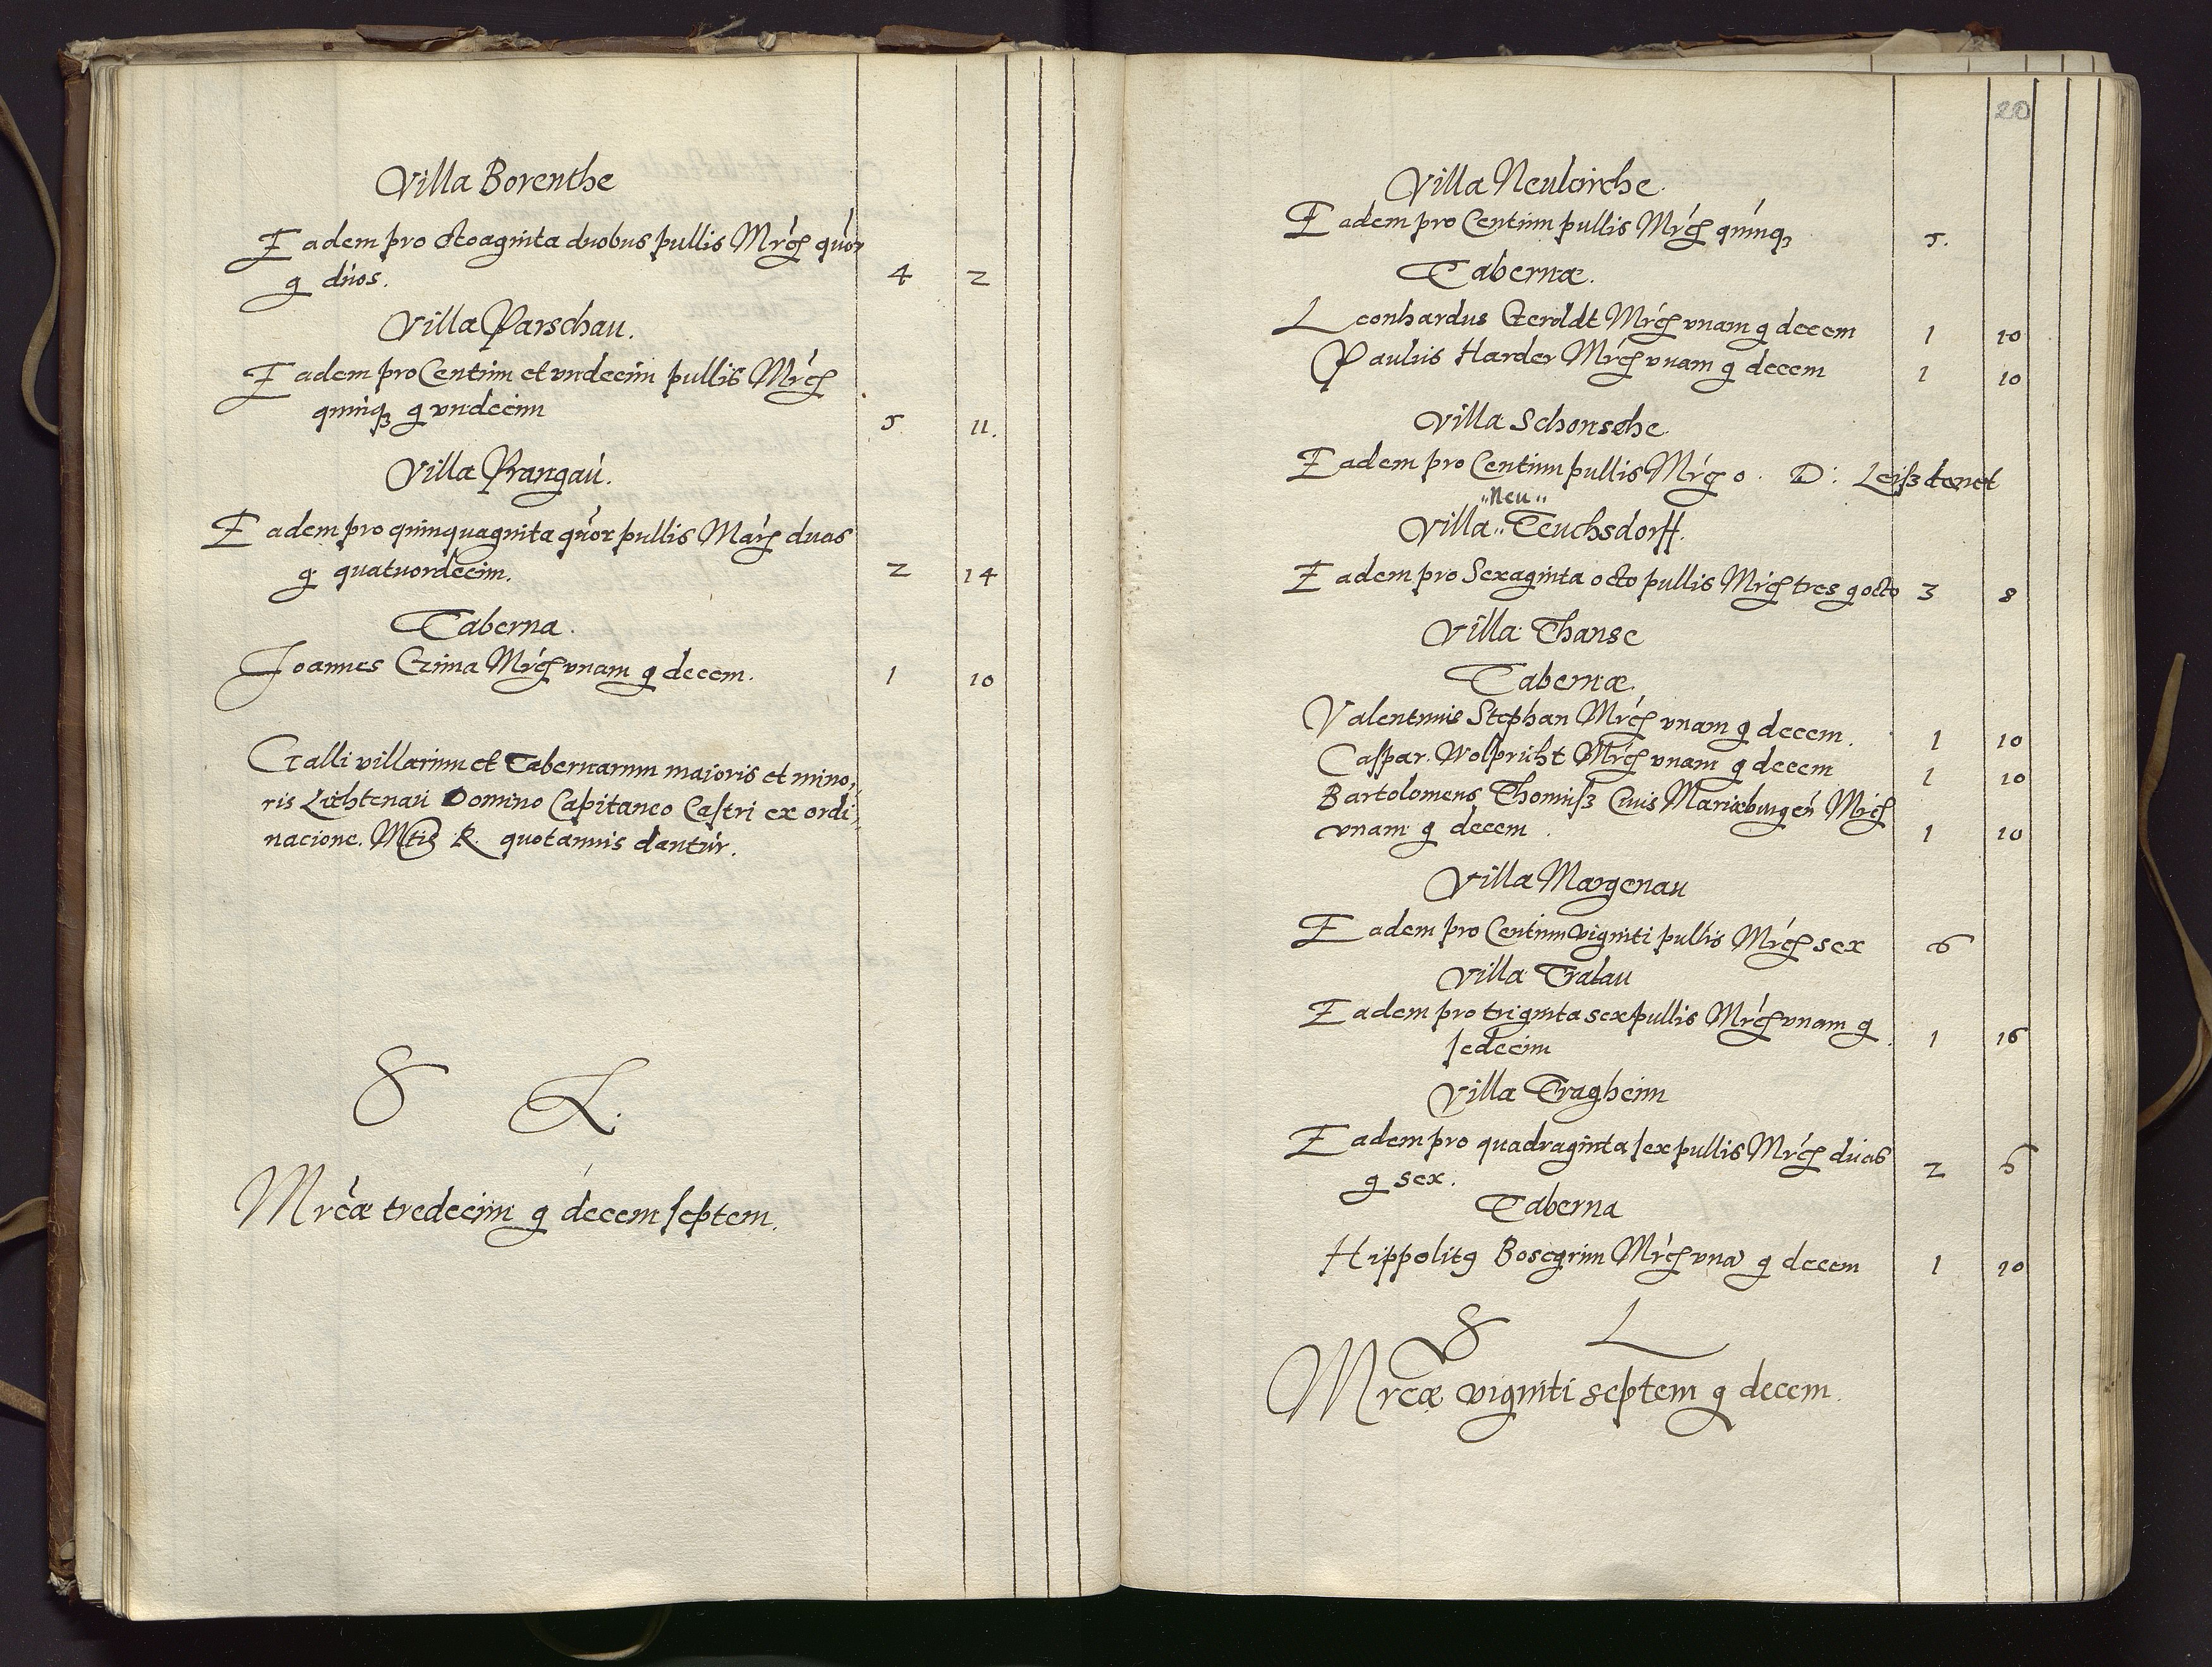 Villa Borenthe
Eadem pro octoaginta duobus pullis Mrcẜ quor
g duos. 4 2
Villa Parschau.
Eadem pro Centum et vndecim pullis Mrcẜ
quinqꝫ g vndecim 5 11.
Villa Prangau.
Eadem pro quinquaginta quor pullis Marẜ duas
g quatuordecim. 2 14
Taberna.
Joannes Gzima Mrcẜ vnam g decem. 1 10
Galli villarum et Tabernarum maioris et mino,,
ris Lichtenau Domino Capitaneo Castri ex ordi,,
nacione. Mtis R. quotannis dantur.
S L.
Mrcæ tredecim g decem septem.
20
Villa Neukirche.
Eadem pro Centum pullis Mrcẜ quinqꝫ 5.
Tabernæ.
Leonhardus Geroldt Mrcẜ vnam g decem 1 10
Paulus Harder Mrcẜ vnam g decem 1 10
Villa Schonsehe.
Eadem pro Centum pullis Mrcẜ 0. D: Leiß tenet
,,Neu,,
Villa,, Teuchsdorff.
Eadem pro Sexaginta octo pullis Mrcẜ tres g octo 3 8
Villa Thanse
Tabernæ.
Valentinus Stephan Mrcẜ vnam g decem. 1 10
Caspar. Wolpricht Mrcẜ vnam g decem 1 10
Bartolomeus Thomiß Ciuis Mariæburgen Mrcẜ
vnam g decem. 1 10
Villa Margenau
Eadem pro Centum viginti pullis Mrcẜ sex 6
Villa Tralau
Eadem pro triginta sex pullis Mrcẜ vnam g
sedecim 1 16
Villa Tragheim
Eadem pro quadraginta sex pullis Mrcẜ duas
g sex. 2 6
Taberna
Hippolitꝰ Bosegrim Mrcẜ vna g decem 1 10
S L
Mrcæ viginti septem g decem.